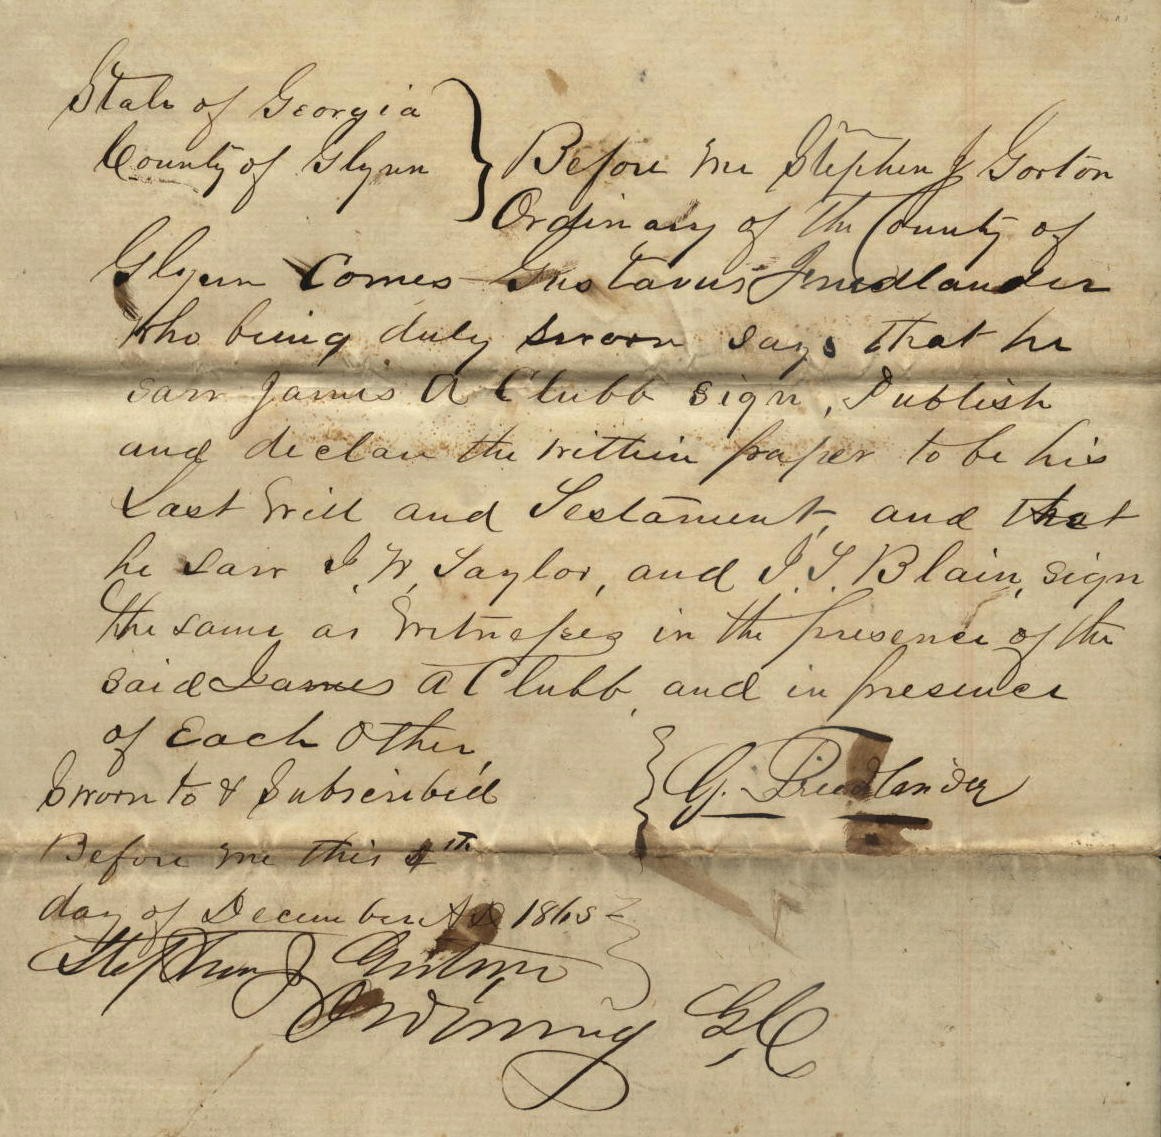 State of Georgia
County of Glynn } Before me Stephen J Gorton
Ordinary of the County of
Glynn Comes Gustavus Friedlander
who being duly sworn says that he
saw James A Clubb sign, Publish
and declare the within paper to be his
Last Will and Testament, and that
he saw J. W. Taylor, and J. T. Blain, sign
the same as Witnesses in the presence of the
said James A Clubb, and in presence
of Each Other,
Sworn to & Subscribed } G. Friedlander
Before me this 4th
day of December A D 1865
Stephen J Gorton
Ordinary G. C